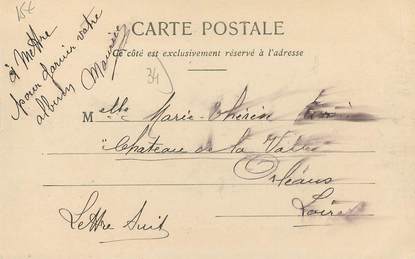 15€
CARTE POSTALE
Ce côté est exclusivement réservé à l'adresse
à mettre
pour dans votre
album Maurice
34
Melle Marie-Thérèse
Château de la
Orléans
Loiret
Lettre suit